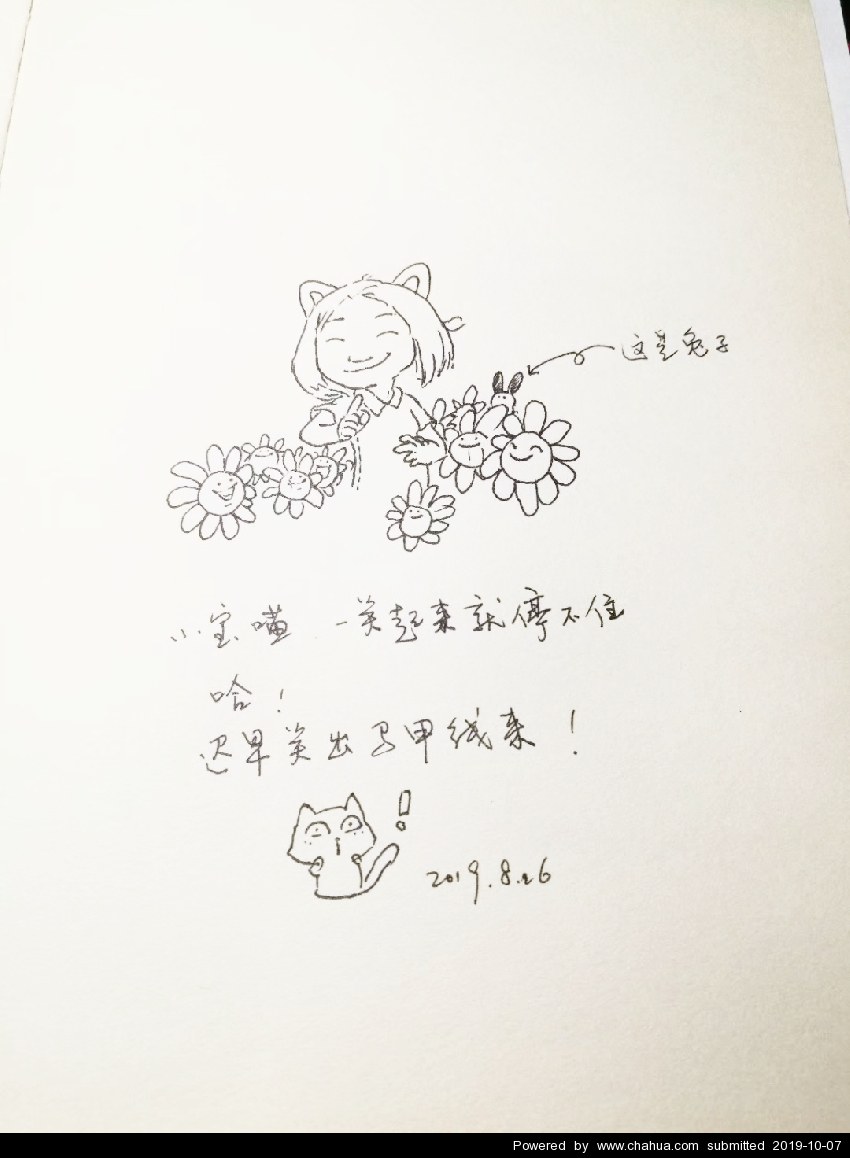 这是兔子
小宝喵 一笑起来就停不住
哈!
迟早笑出马甲线来!
!
2019.8.26
Powered by www.chahua.com submitted 2019-10-07